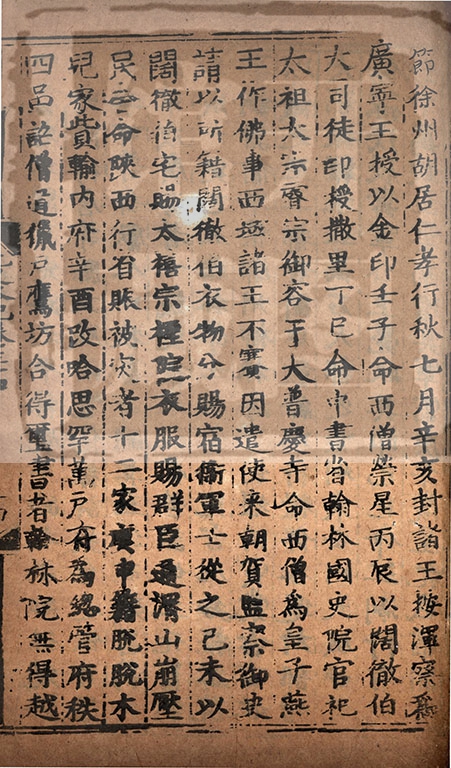 節徐州胡居仁孝行秋七月辛亥封諸王按渾察為
廣寧王授以金印壬子命西僧禜星丙辰以闊徹伯
大司徒印授撒里丁巳命中書省翰林國史院官祀
太祖太宗睿宗御容于大普慶寺命西僧為皇子燕
王作佛事西域諸王不賽因遣使来朝賀監察御史
請以所籍闊徹伯衣物分賜宿衛軍士從之己未以
闊徹伯宅賜太禧宗禋院衣服賜群臣通渭山崩壓
民舍命陝西行省賑被災者十二家庚申籍脫脫木
兒家貲輸内府辛酉改哈思罕萬戸府為總管府秩
四品詔僧道獵戸鷹坊合得璽書者翰林院無得越